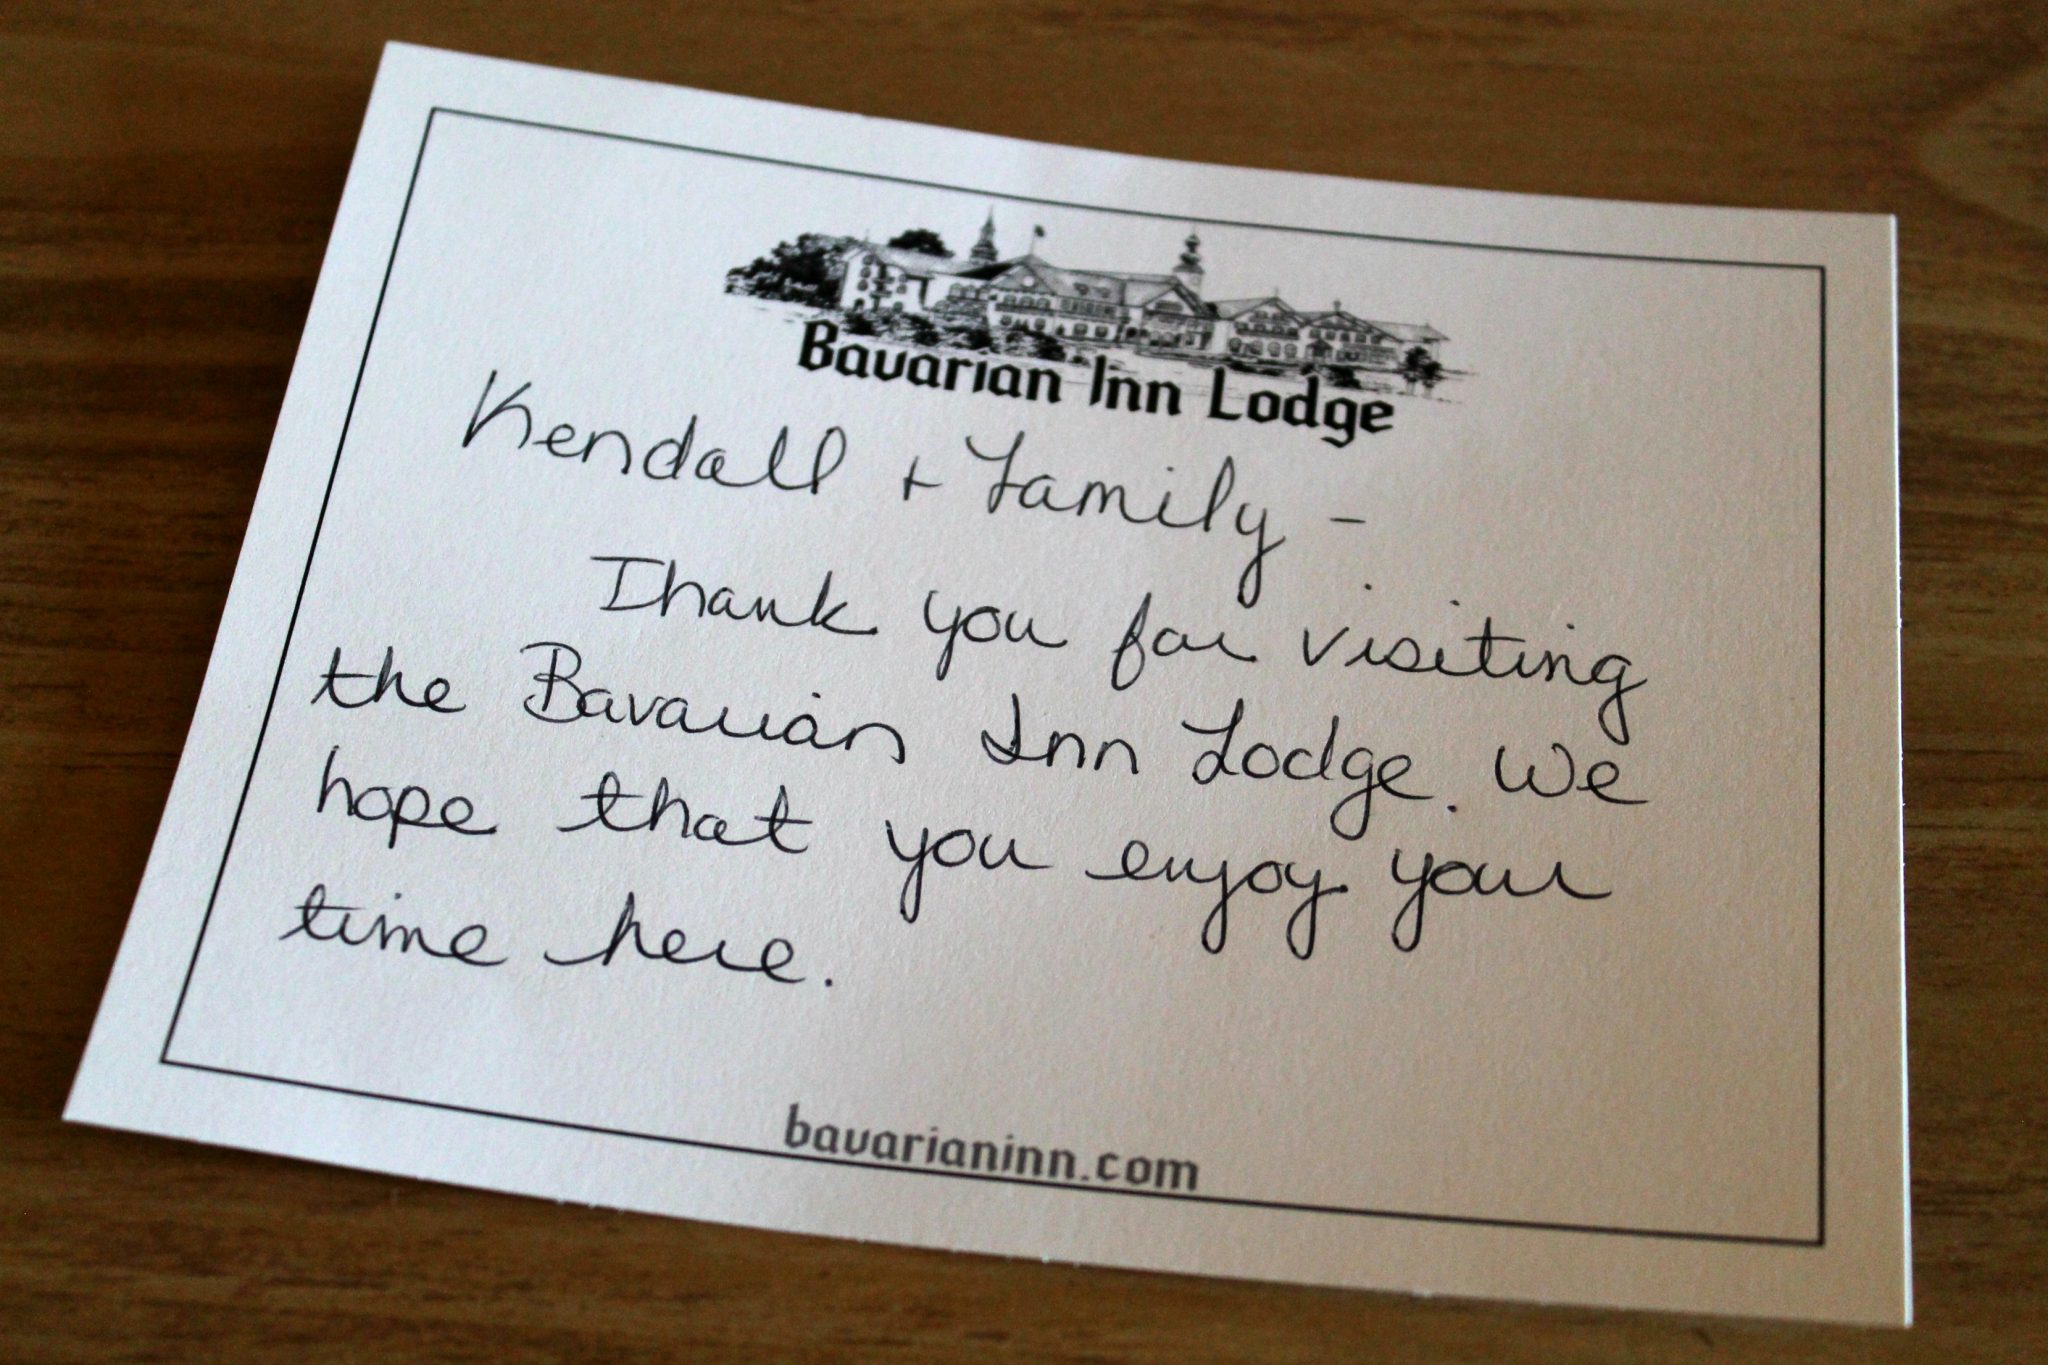 Bavarian Inn Lodge
Kendall + Family -
Thank you for visiting
the Bavarian Inn Lodge. We
hope that you enjoy your
time here.
bavarianinn.com